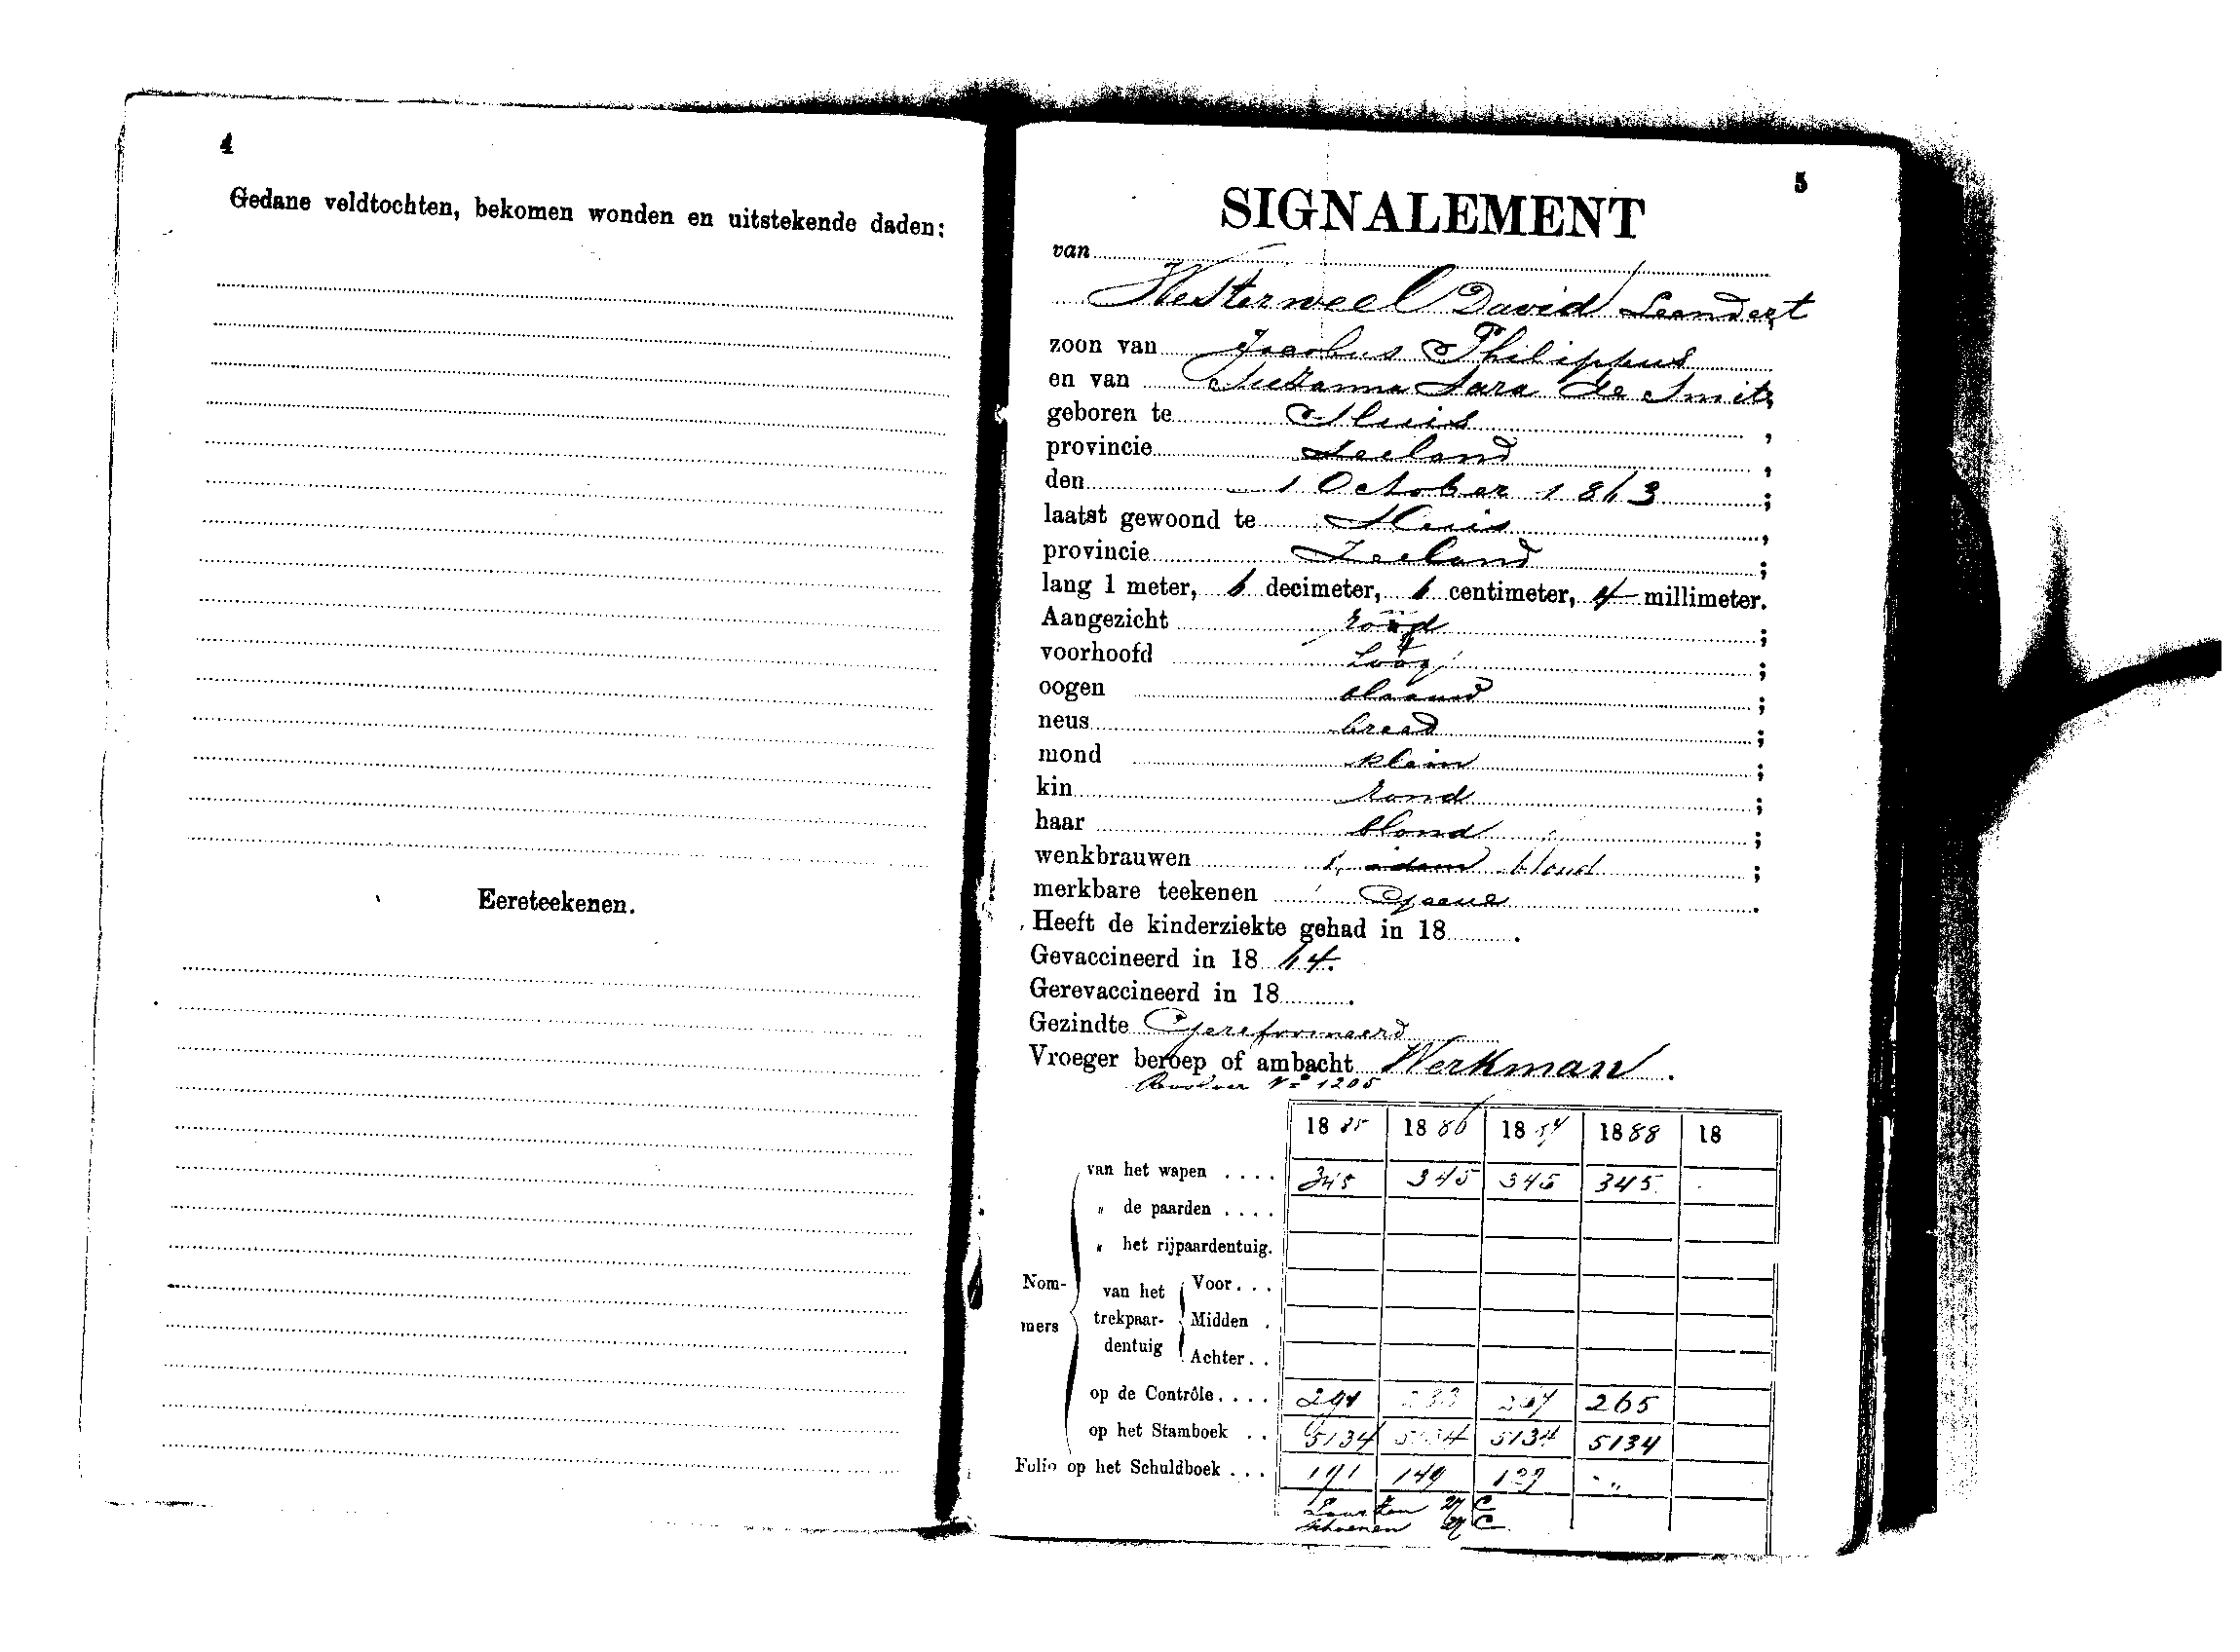 4
Gedane veldtochten, bekomen wonden en uitstekende daden:
Eereteekenen.
5
SIGNALEMENT
van
Westerweel David Leendert
zoon van Jacobus Philippus
en van Suzanna Sara de Smit,
geboren te Sluis,
provincie Zeeland,
den 1 October 1863;
laatst gewoond te Sluis,
provincie Zeeland;
lang 1 meter, 6 decimeter, 6 centimeter, 4 millimeter.
Aangezicht rond;
voorhoofd hoog;
oogen blaauw;
neus breed;
mond klein;
kin rond;
haar blond;
wenkbrauwen idem blond;
merkbare teekenen Geene.
Heeft de kinderziekte gehad in 18 .
Gevaccineerd in 18 64.
Gerevaccineerd in 18 .
Gezindte Gereformeerd
Vroeger beroep of ambacht Werkman.
Revolver No 1205
18 85 18 86 18 18 88 18
van het wapen .... 345 345 345 345
" de paarden ....
" het rijpaardentuig.
Nommers
van het trekpaardentuig
Voor...
Midden .
Achter..
op de Contrôle.... 265
op het Stamboek .. 5134 5134 5134 5134
Folio op het Schuldboek ... 191 149 "
Laarzen 27 C
schoenen 27 C